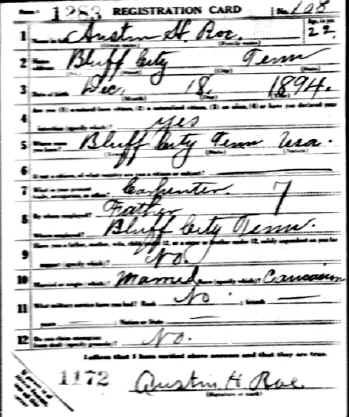 1283 REGISTRATION CARD No. 108
1 Name in full Austin H. Roe. Age, in yrs. 22
(Given name) (Family name)
2 Home address Bluff City Tenn
3 Date of birth Dec. 18. 1894.
(Month) (Day) (Year)
4 Are you (1) a natural-born citizen, (2) a naturalized citizen, (3) an alien, (4) or have you declared your
intention (specify which)? yes
5 Where were you born? Bluff City Tenn Usa.
6 If not a citizen, of what country are you a citizen or subject?
7 What is your present trade, occupation, or office? Carpenter. 7
8 By whom employed? Father
Where employed? Bluff City Tenn.
9 Have you a father, mother, wife, child under 12, or a sister or brother under 12, solely dependent on you for
support (specify which)? No.
10 Married or single (which)? Married Race (specify which)? Caucasian
11 What military service have you had? Rank No ; branch
years Nation or State
12 Do you claim exemption from draft (specify grounds)? No.
I affirm that I have verified above answers and that they are true.
1172 Austin H. Roe.
(Signature or mark)